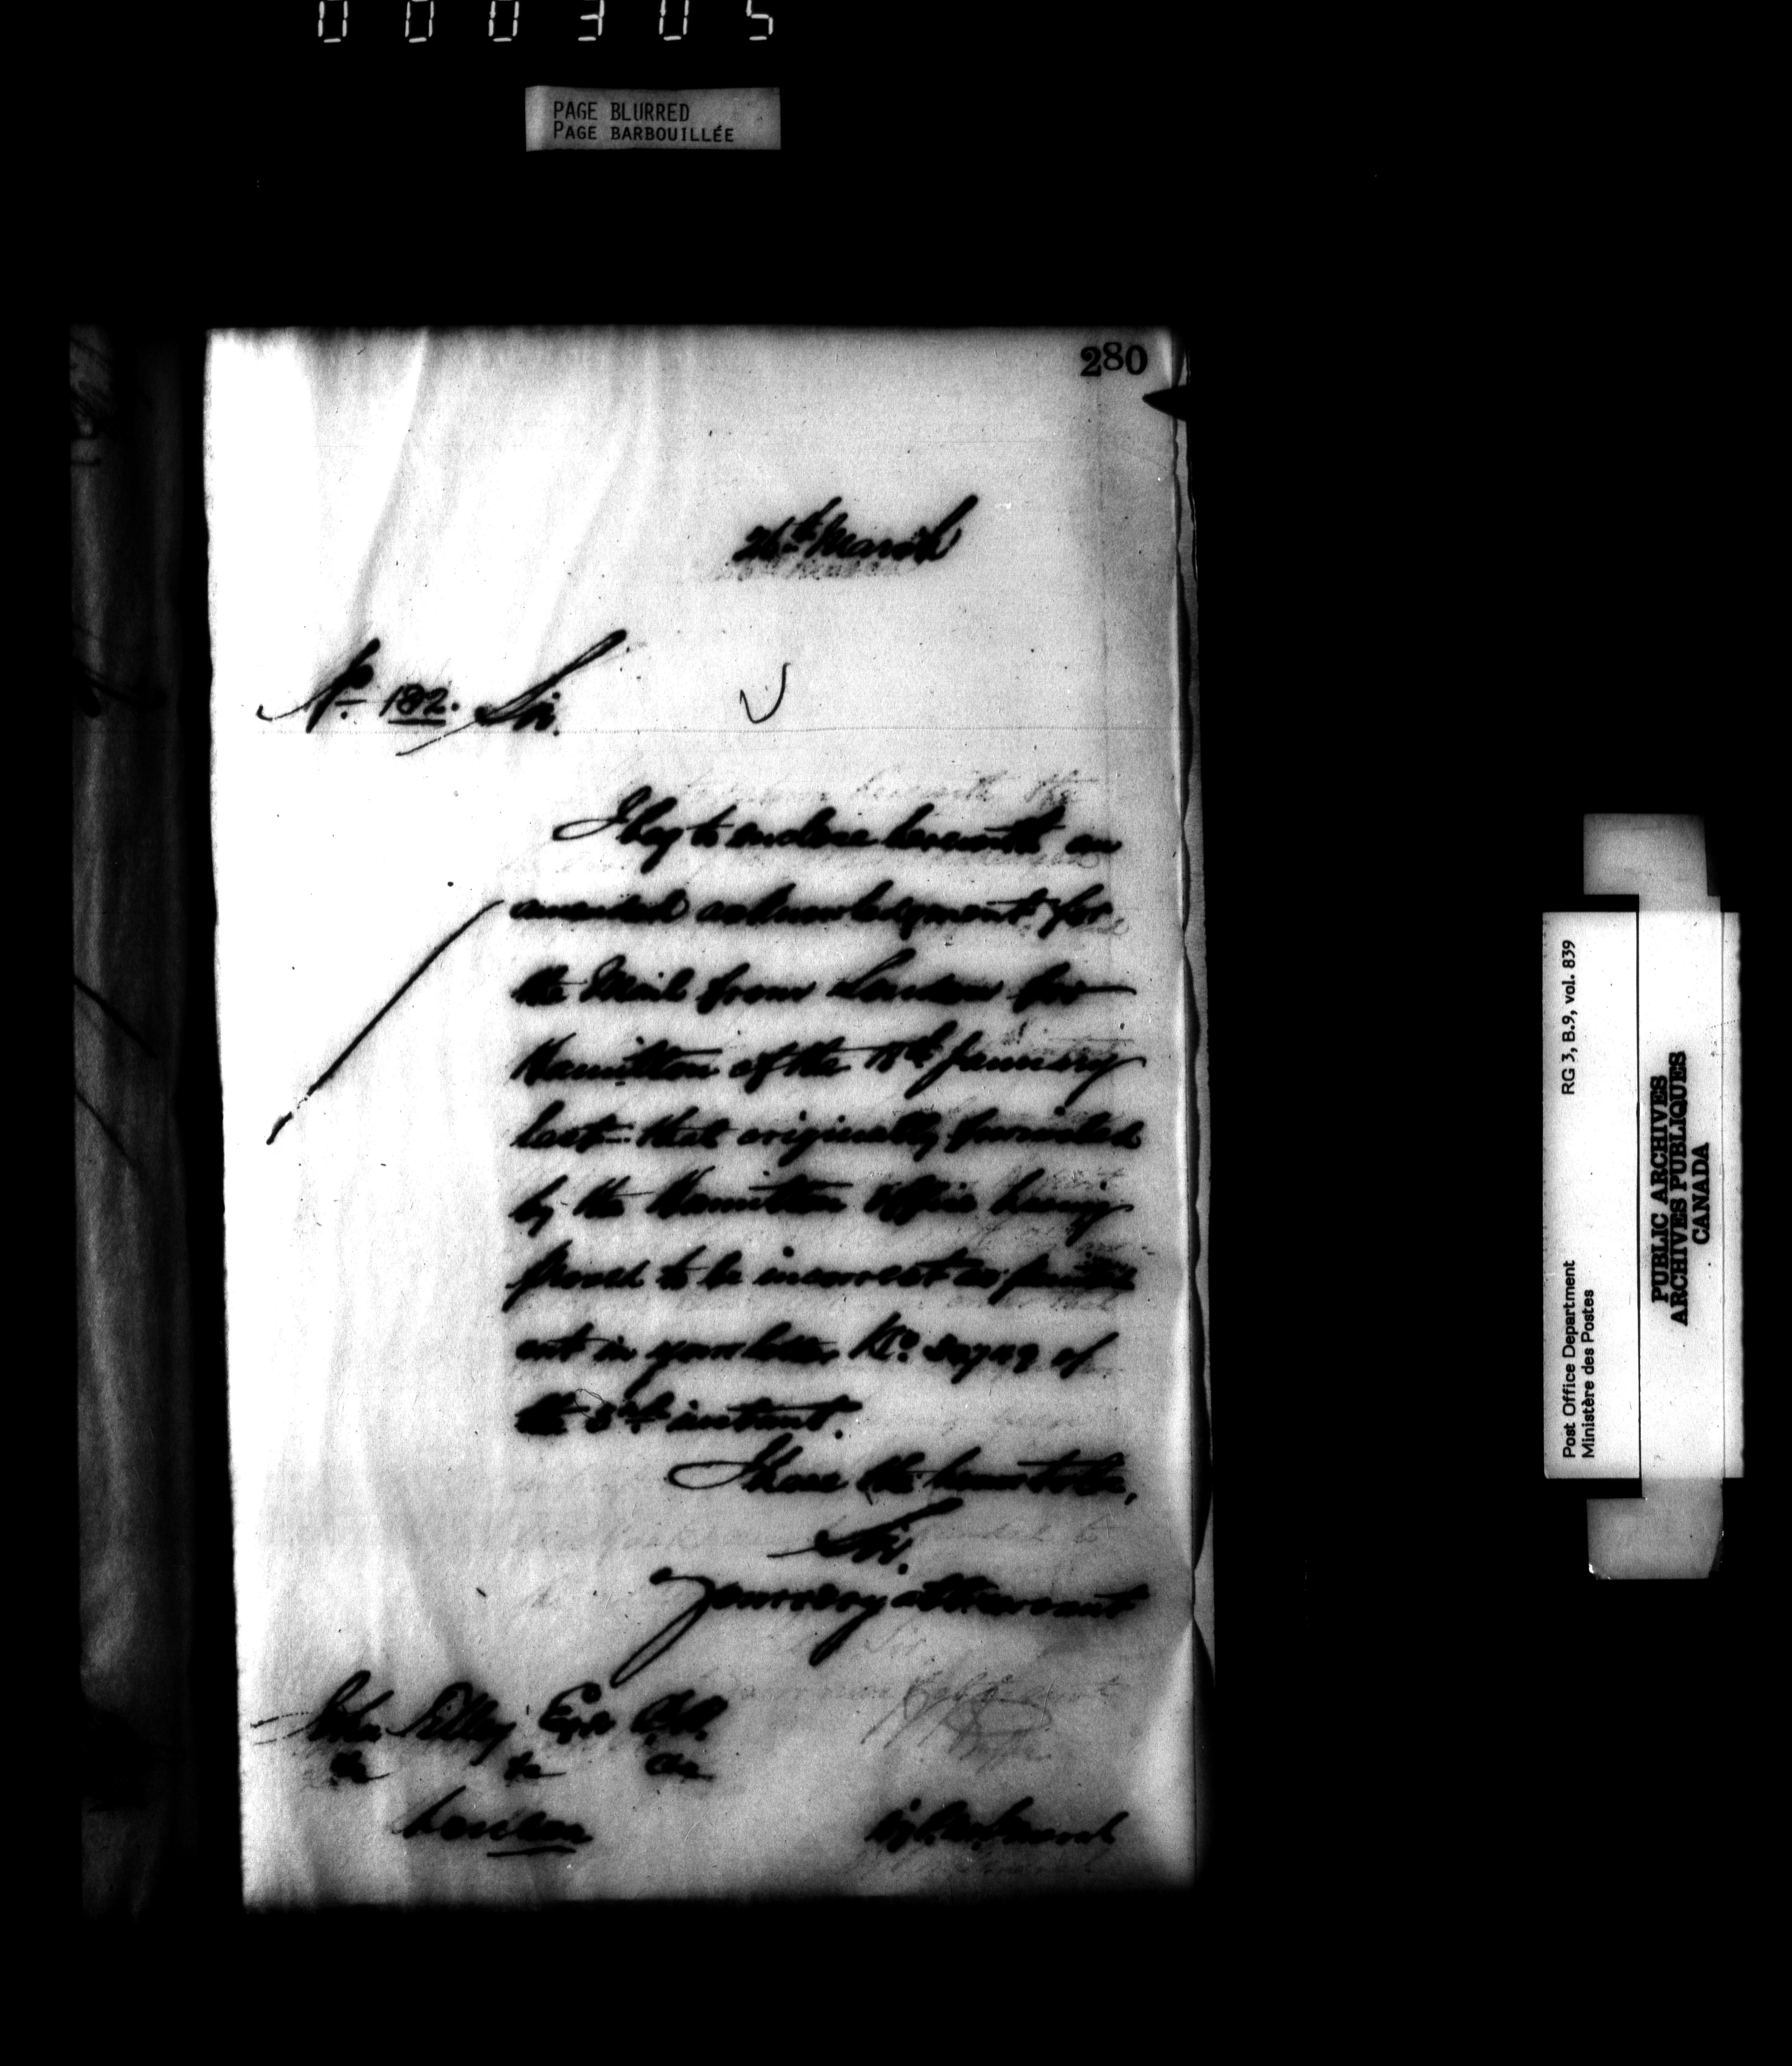 000305
PAGE BLURRED
PAGE BARBOUILLÉE
280
26th March
No. 182. Sir.
I beg to enclose herewith an
amended acknowledgment for
the Mail from London for
Hamilton of the 18th January
last that originally furnished
by the Hamilton Office having
proved to be incorrect as pointed
out in your letter No. of
the 3rd instant.
I have the honor to be,
Sir.
Your very obt servant
John Tilley Esqre C.B.
&c &c &c
London
RG 3, B.9, vol. 839
Post Office Department
Ministère des Postes
PUBLIC ARCHIVES
ARCHIVES PUBLIQUES
CANADA